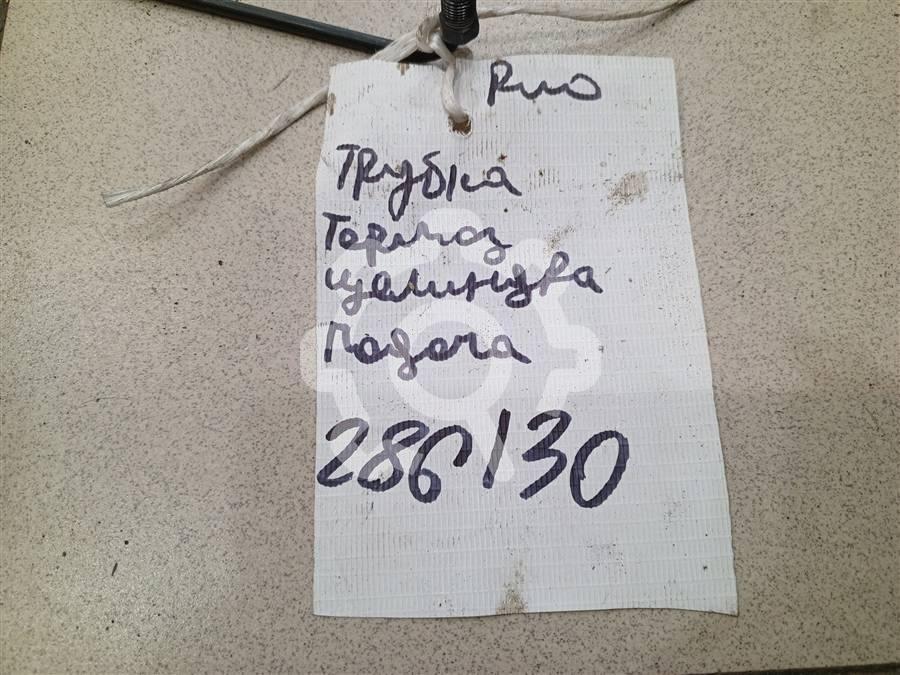 Рио
Трубка
Тормоз
цилиндра
Подача
286130